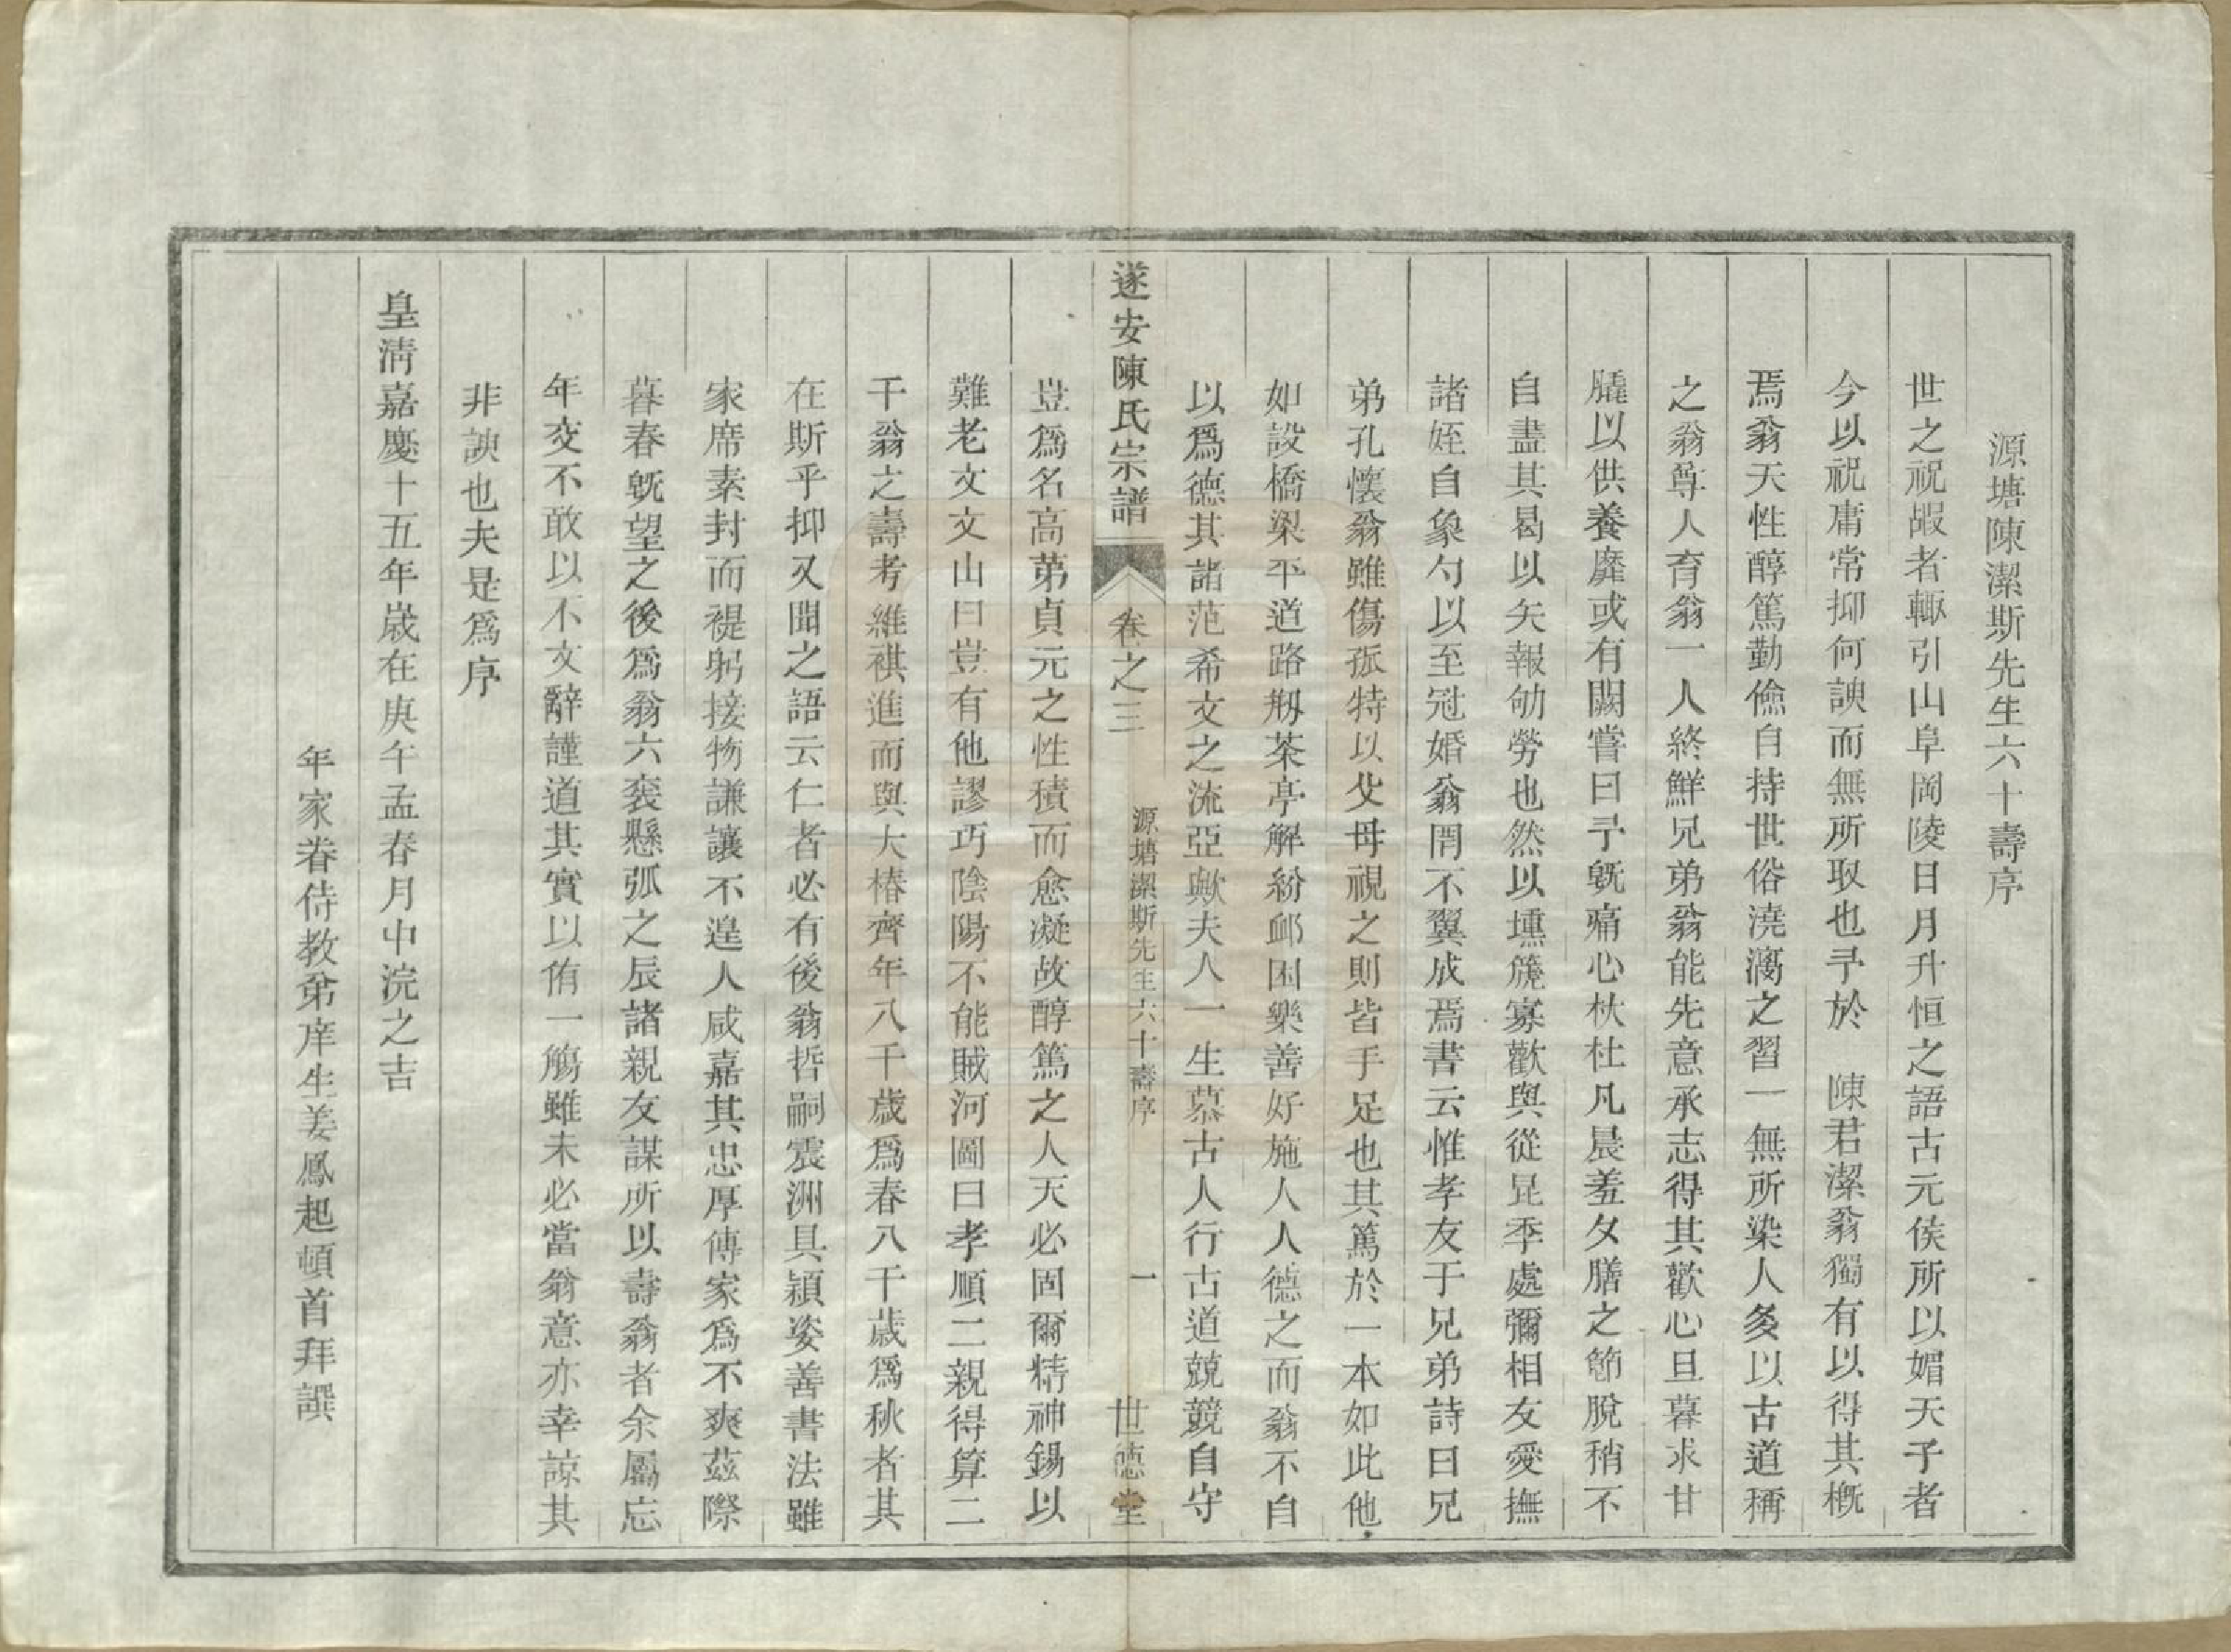 源塘陳潔斯先生六十壽序
世之祝嘏者輙引山阜岡陵日月升恒之語古元侯所以媚天子者
今以祝庸常抑何諛而無所取也予於　陳君潔翁獨有以得其槪
焉翁天性醇篤勤儉自持世俗澆漓之習一無所染人㚊以古道稱
之翁尊人育翁一人終鮮兄弟翁能先意承志得其歡心旦暮求甘
膬以供養靡或有闕嘗曰予旣痛心杕杜凡晨羞夕膳之節脫稍不
自盡其曷以矢報劬勞也然以壎篪寡歡與從昆季處彌相友愛撫
諸姪自象勺以至冠婚翁罔不翼成焉書云惟孝友于兄弟詩曰兄
弟孔懷翁雖傷孤特以父母視之則皆手足也其篤於一本如此他
如設橋梁平道路剏茶亭解紛䘏困樂善好施人人德之而翁不自
以爲德其諸范希文之流亞歟夫人一生慕古人行古道兢兢自守
遂安陳氏宗譜　卷之三　源塘潔斯先生六十壽序　一　世德堂
豈爲名高苐貞元之性積而愈凝故醇篤之人天必固爾精神錫以
難老文文山曰豈有他謬巧陰陽不能賊河圖曰孝順二親得算二
千翁之壽考維祺進而與大椿齊年八千歲爲春八千歲爲秋者其
在斯乎抑又聞之語云仁者必有後翁哲嗣震洲具穎姿善書法雖
家席素封而禔躬接物謙讓不遑人咸嘉其忠厚傳家爲不爽茲際
暮春旣望之後爲翁六袠懸弧之辰諸親友謀所以壽翁者余屬忘
年交不敢以不文辭謹道其實以侑一觴雖未必當翁意亦幸諒其
非諛也夫是爲序
皇淸嘉慶十五年歲在庚午孟春月中浣之吉
年家眷侍教弟庠生姜鳳起頓首拜譔